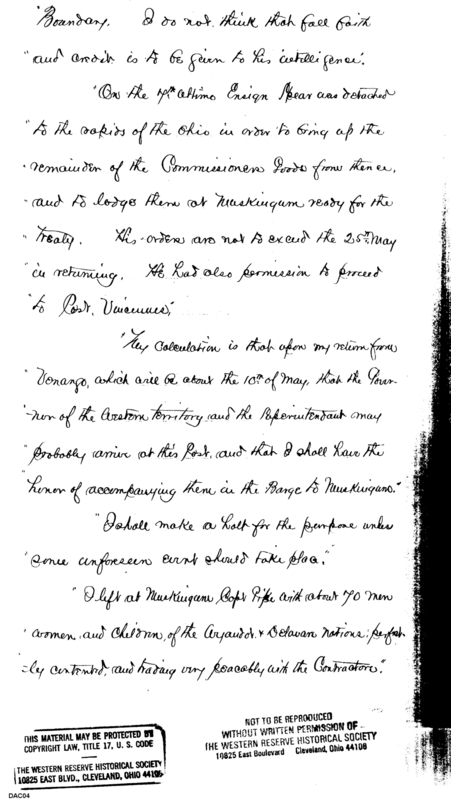 "Boundary. I do not think that full faith
"and credit is to be given to his intelligence."
"On the 7th ultimo Ensign Spear was detached
"to the rapids of the Ohio in order to bring up the
"remainder of the Commissioners Goods from thence,
"and to lodge them at Muskingum ready for the
"Treaty. His orders are not to exceed the 25th May
"in returning. He had also permission to proceed
"to Post. Vincennes,"
"My calculation is that upon my return from
"Venango, which will be about the 10th of May, that the Gover-
"nor of the Western territory and the Superintendant may
"probably arrive at this Post, and that I shall have the
"honor of accompanying them in the Barge to Muskingum."
"I shall make a halt for the purpose unless
"some unforeseen event should take place."
"I left at Muskingum, Capt Pipe with about 70 men
"women, and Children, of the Wyandot & Delawar nations; perfect-
-ly contented, and trading very peaceably with the Contractors."
THIS MATERIAL MAY BE PROTECTED BY
COPYRIGHT LAW, TITLE 17, U. S. CODE
THE WESTERN RESERVE HISTORICAL SOCIETY
10825 EAST BLVD., CLEVELAND, OHIO 44106
NOT TO BE REPRODUCED
WITHOUT WRITTEN PERMISSION OF
THE WESTERN RESERVE HISTORICAL SOCIETY
10825 East Boulevard Cleveland, Ohio 44106
DAC04